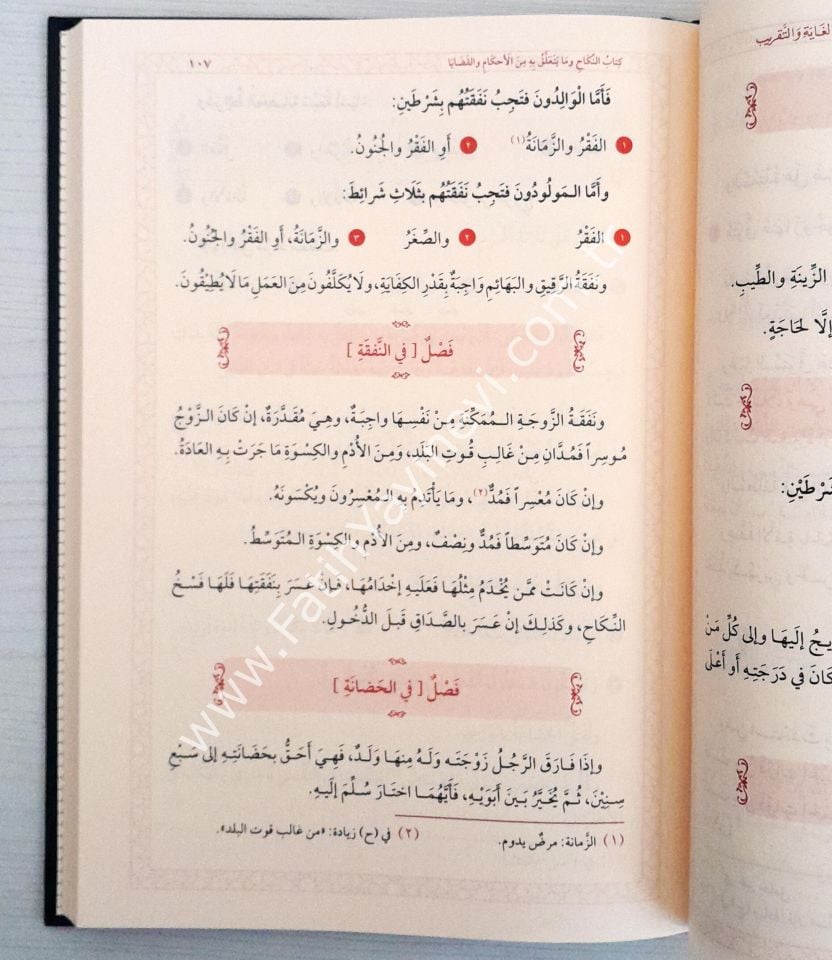 كِتَابُ النِّكَاحِ ومَا يَتَعَلَّقُ بِهِ مِنَ الأَحكَامِ والقَضَايَا ١٠٧
فَأَمَّا الْوَالِدُونَ فتَجِبُ نَفَقَتُهُم بِشَرْطَينِ:
١ الفَقْرُ والزَّمَانَةُ(١) ٢ أَوِ الفَقْرُ والْجُنُونُ.
وأَمَّا الـمَولُودُونَ فتَجِبُ نَفَقَتُهُم بثَلَاثِ شَرائِطَ:
١ الفَقْرُ ٢ والصِّغَرُ ٣ والزَّمَانَةُ، أَوِ الفَقْرُ والجُنُونُ.
ونَفَقَةُ الرَّقِيقِ والبَهَائِمِ وَاجِبَةٌ بِقَدْرِ الكِفَايَةِ، ولَا يُكَلَّفُونَ مِنَ العَمَلِ مَا لَا يُطِيْقُونَ.
فَصْلٌ [في النَّفقَةِ]
ونَفَقَةُ الزَّوجَةِ الـمُمَكِّنَةِ مِنْ نَفْسِهَا واجِبَةٌ، وهِيَ مُقَدَّرَةٌ، إنْ كَانَ الزَّوْجُ
مُوسِراً فَمُدَّانِ مِنْ غَالِبِ قُوتِ البَلَدِ، ومِنَ الأُدْمِ والكِسْوَةِ مَا جَرَتْ بِهِ العَادَةُ.
وإنْ كَانَ مُعْسِراً فَمُدٌّ(٢)، ومَا يَأْتَدِمُ بِهِ الـمُعْسِرُونَ ويُكْسَونَهُ.
وإنْ كَانَ مُتَوَسِّطاً فَمُدٌّ ونِصْفٌ، ومِنَ الأُدْمِ والكِسْوَةِ الـمُتَوَسِّطُ.
وإنْ كَانَتْ مِمَّن يُخْدَمُ مِثْلُهَا فَعَلَيهِ إِخْدَامُهَا، فإنْ عَسَرَ بِنَفَقَتِهَا فَلَهَا فَسْخُ
النِّكَاحِ، وكَذلِكَ إنْ عَسَرَ بالصَّدَاقِ قَبلَ الدُّخُولِ.
فَصْلٌ [في الحَضانَةِ]
وإذَا فَارَقَ الرَّجُلُ زَوْجَتَه ولَهُ مِنهَا ولَدٌ، فَهِيَ أَحَقُّ بحَضَانَتِهِ إلى سَبْعِ
سِنِيْنَ، ثُمَّ يُخَيَّرُ بَينَ أَبَوَيْهِ، فَأَيُّهُمَا اختَارَ سُلِّمَ إلَيهِ.
(١) الزَّمانة: مرضٌ يدوم. (٢) في (ح) زيادة: «من غالب قوت البلد».
والتَّقريب
الزِّينَةِ والطِّيبِ.
إلَّا لحَاجَةٍ.
إلَيهَا وإلى كُلِّ مَنْ
كَانَ في دَرَجَتِهِ أو أَعْلَى
www.FatihYayinevi.com.tr